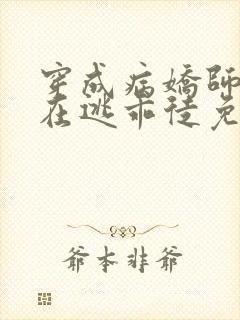 穿成病嬌師
在逃乖徒免
爺本非爺